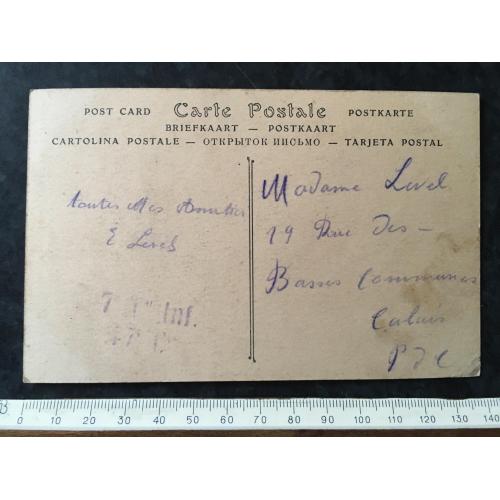 POST CARD Carte Postale POSTKARTE
BRIEFKAART — POSTKAART
CARTOLINA POSTALE — ОТКРЫТОК ПИСЬМО — TARJETA POSTAL
toutes Mes Amitiés
E Level
Inf.
Madame Level
19 Rue des —
Basses Communes
Calais
P d C
0 10 20 30 40 50 60 70 80 90 100 110 120 130 140